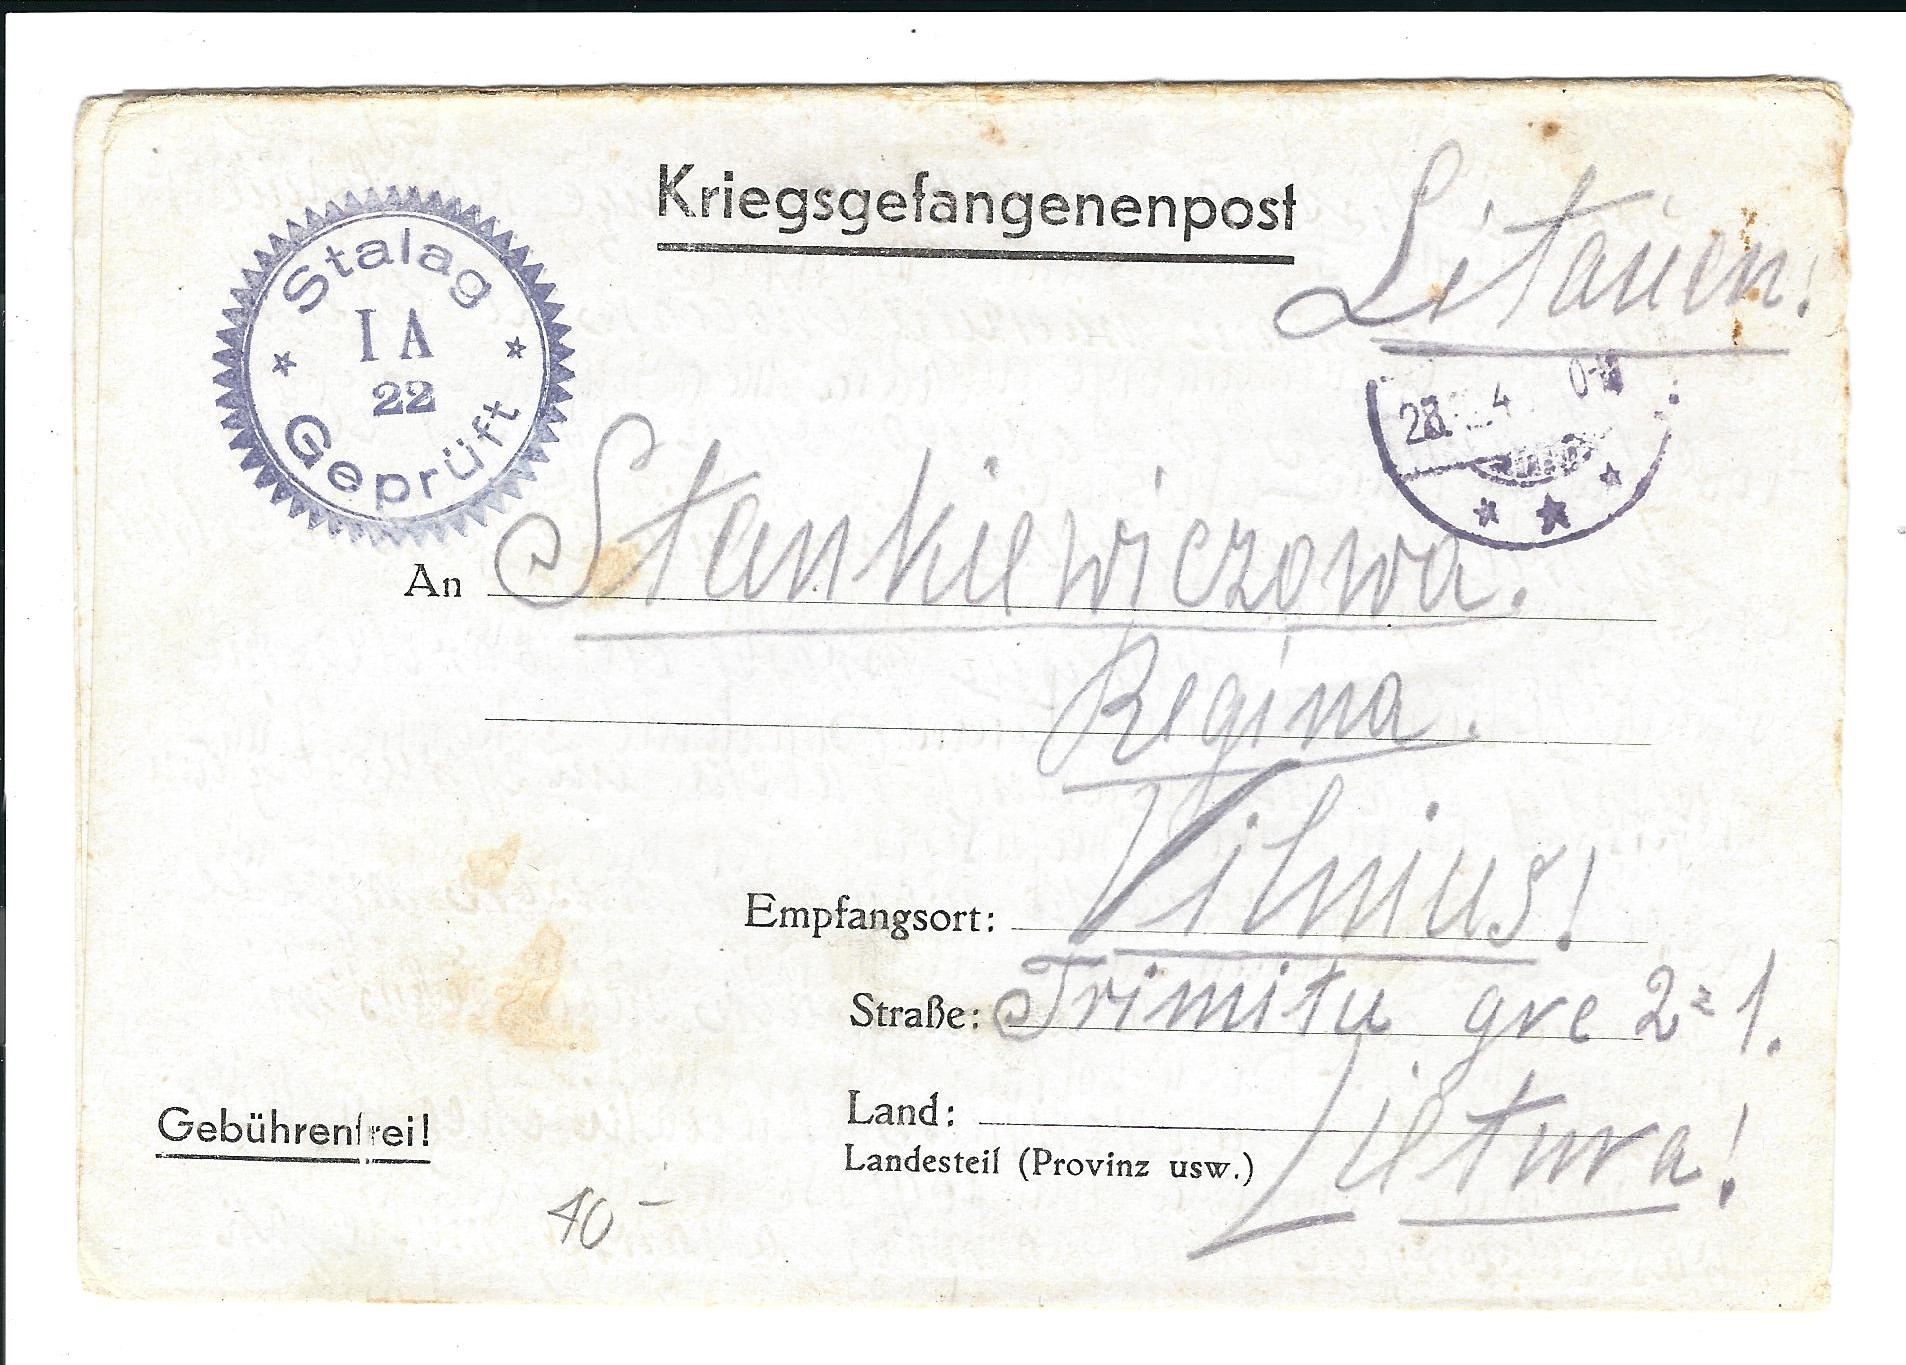 Kriegsgefangenenpost
Litauen!
Stalag
I A
22
Geprüft
28. 4 0-
An Stankiewiczowa.
Regina.
Empfangsort: Vilnius!
Straße: Trimitu gve 2=1.
Land: Lietuva!
Landesteil (Provinz usw.)
Gebührenfrei!
40 –